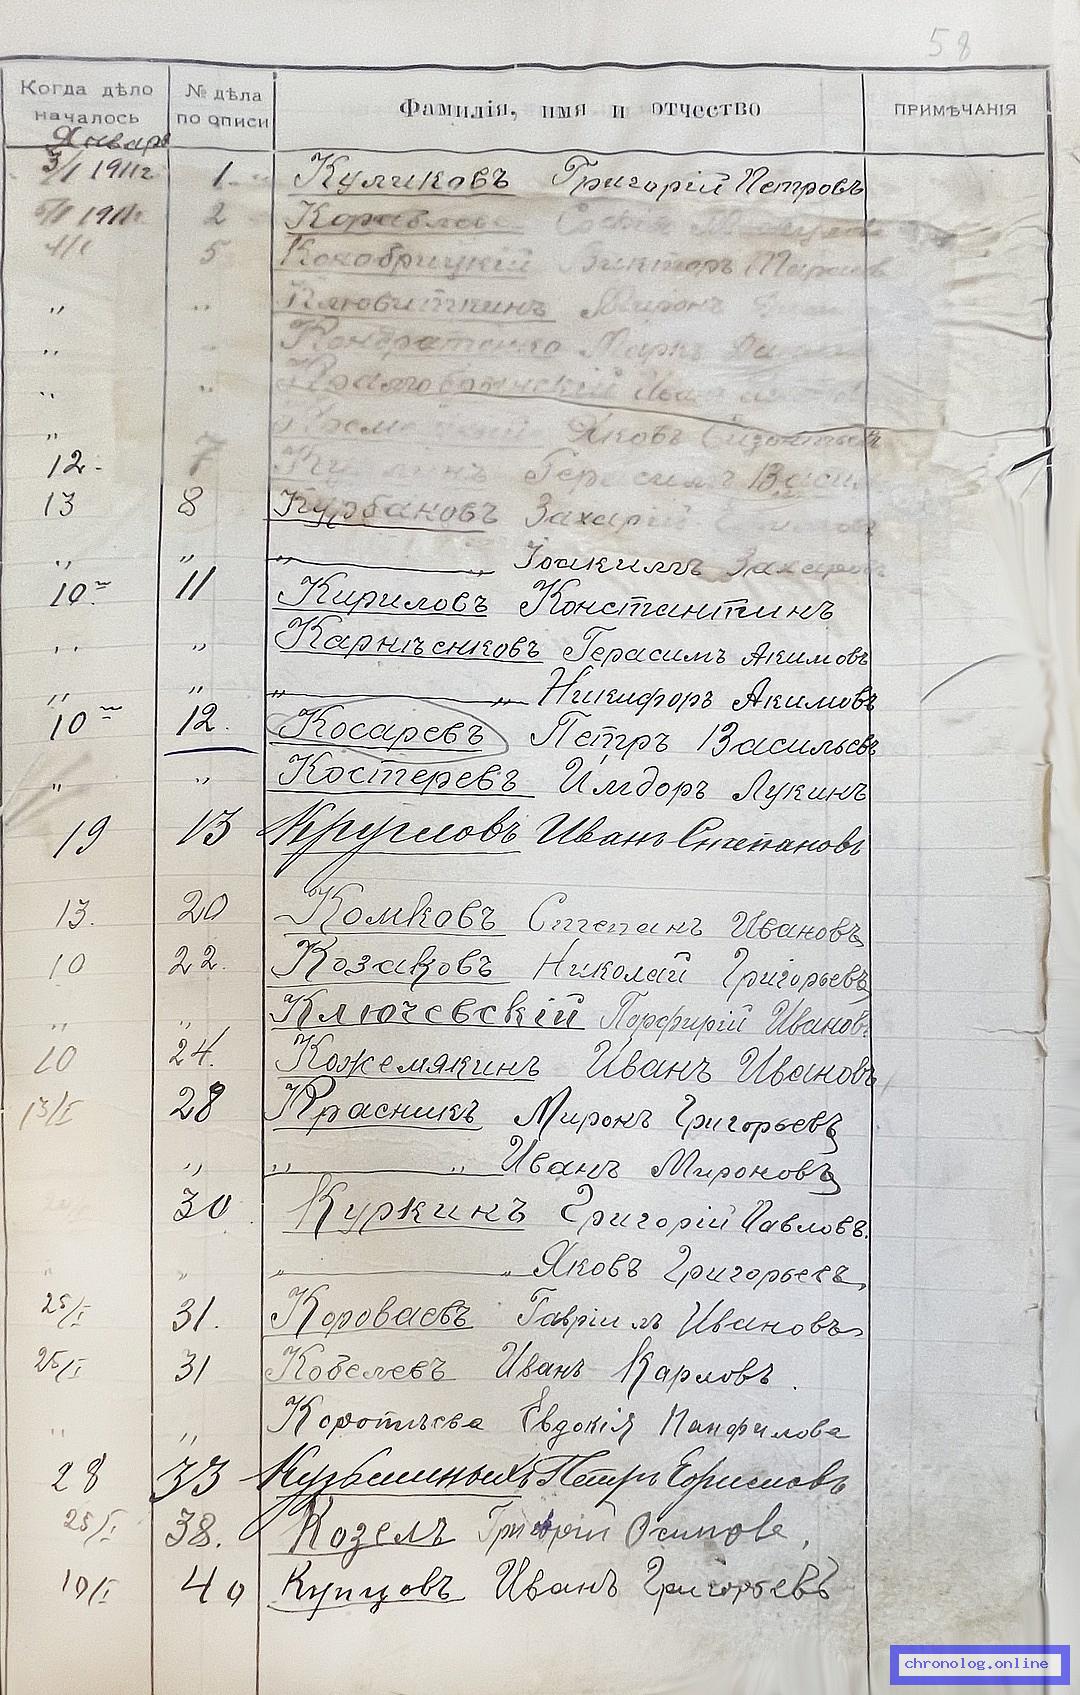 58
Когда дѣло началось № дѣла по описи Фамилія, имя и отчество ПРИМѢЧАНІЯ
Январь
3/I 1911г 1. Куликовъ Григорій Петровъ
5/I 1911г 2
5 Кохобрицкій Викторъ
„ „ Клювиткинъ Миронъ
„ Кондратенко Маркъ
„ „ Иван
„ Яковъ
12. 7 Герасимъ Васил
13 8 Курбановъ Захарій
„ „ „ „ Іоакимъ Захаров
10 11 Кириловъ Константинъ
„ „ Карнѣенковъ Герасимъ Акимовъ
„ „ „ „ Никифоръ Акимовъ
10 12. Косаревъ Петръ Васильевъ
„ „ Костеревъ Лукинъ
19 13 Кругловъ Иванъ Степановъ
13. 20 Комковъ Степанъ Ивановъ
10 22. Козаковъ Николай Григорьевъ
„ „ Ключевскій Порфирій Ивановъ
10 24. Кожемякинъ Иванъ Ивановъ
13/I 28 Красникъ Миронъ Григорьевъ
„ „ „ Иванъ Мироновъ
30 Куркинъ Григорій Павловъ.
„ „ „ „ Яковъ Григорьевъ
25/I 31. Короваевъ Гавріилъ Ивановъ
25/I 31 Кобелевъ Иванъ Карловъ.
„ „ Коротѣева Евдокія Панфилова
28 33 Кузьминыхъ Петръ Борисовъ
25/I 38. Козелъ Григорій Осипова.
10/I 40 Купцовъ Иванъ Григорьевъ
chronolog.online